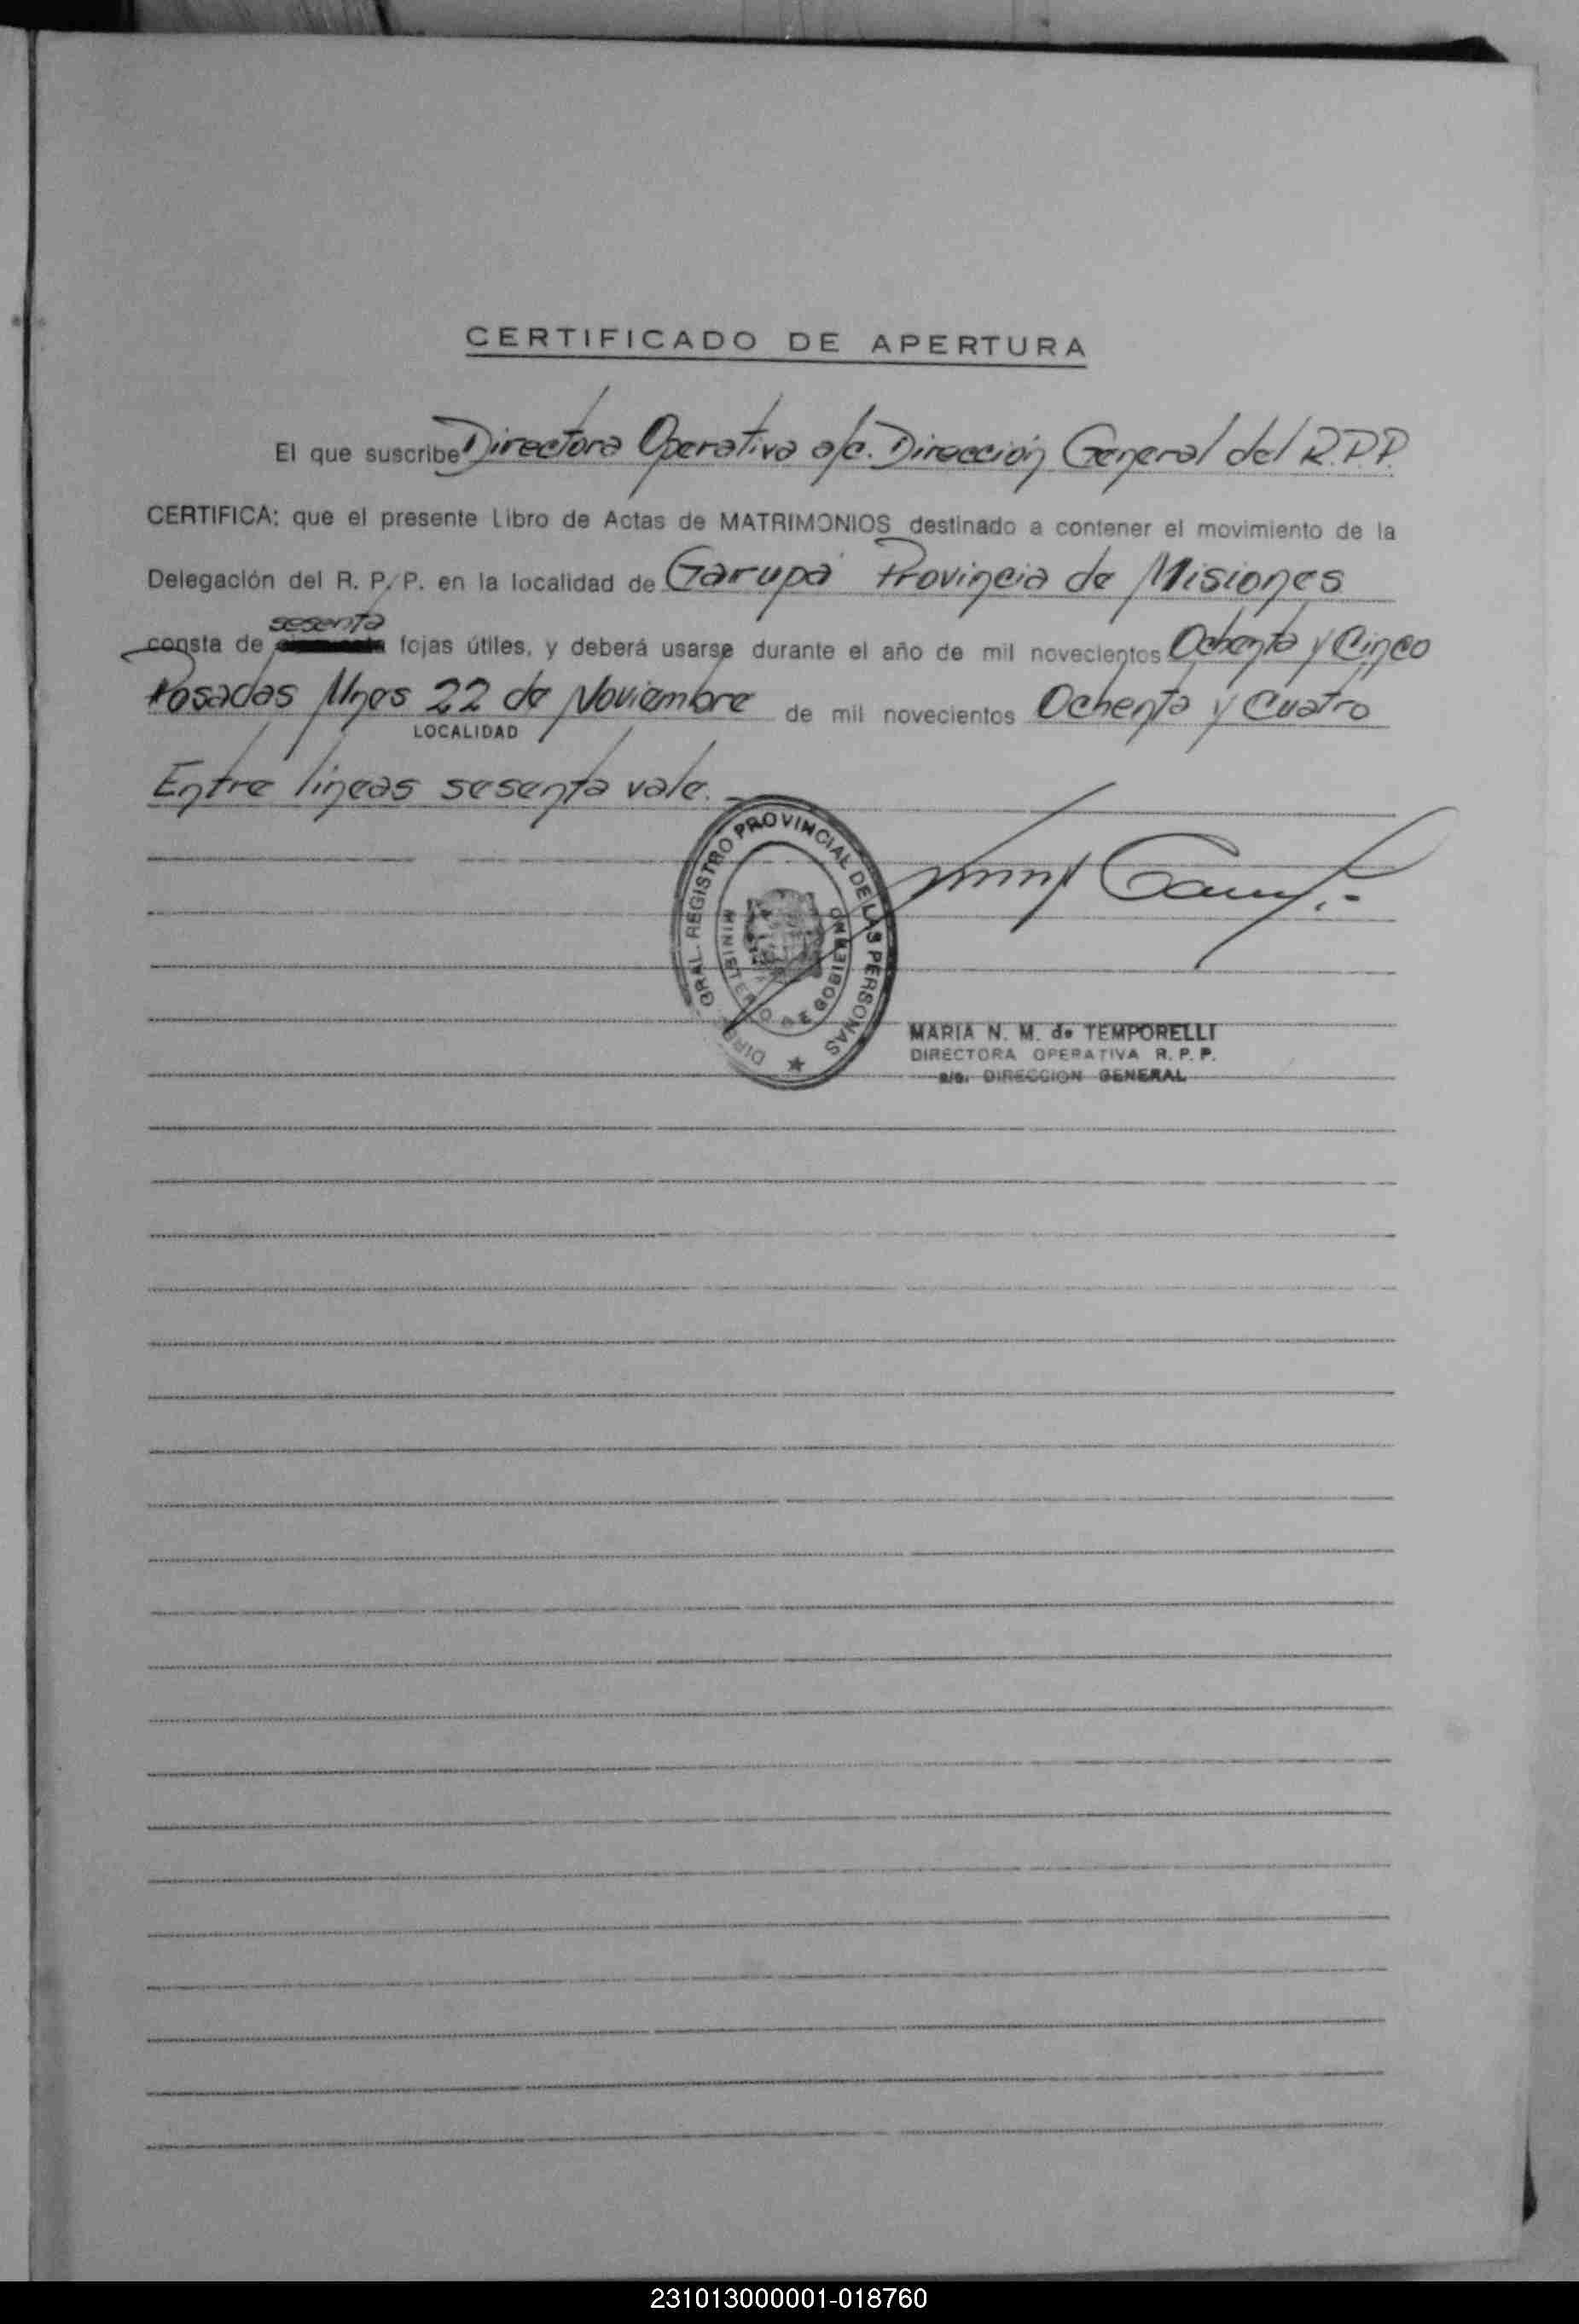 CERTIFICADO DE APERTURA
El que suscribe Directora Operativa a/c. Dirección General del R.P.P.
CERTIFICA: que el presente Libro de Actas de MATRIMONIOS destinado a contener el movimiento de la
Delegación del R. P. P. en la localidad de Garupá Provincia de Misiones
sesenta
consta de fojas útiles, y deberá usarse durante el año de mil novecientos Ochenta y Cinco
Posadas Mnes 22 de Noviembre de mil novecientos Ochenta y Cuatro
LOCALIDAD
Entre lineas sesenta vale.-
DIREC. GRAL. REGISTRO PROVINCIAL DE LAS PERSONAS
MINISTERIO DE GOBIERNO
MARIA N. M. de TEMPORELLI
DIRECTORA OPERATIVA R. P. P.
a/c. DIRECCION GENERAL
231013000001-018760